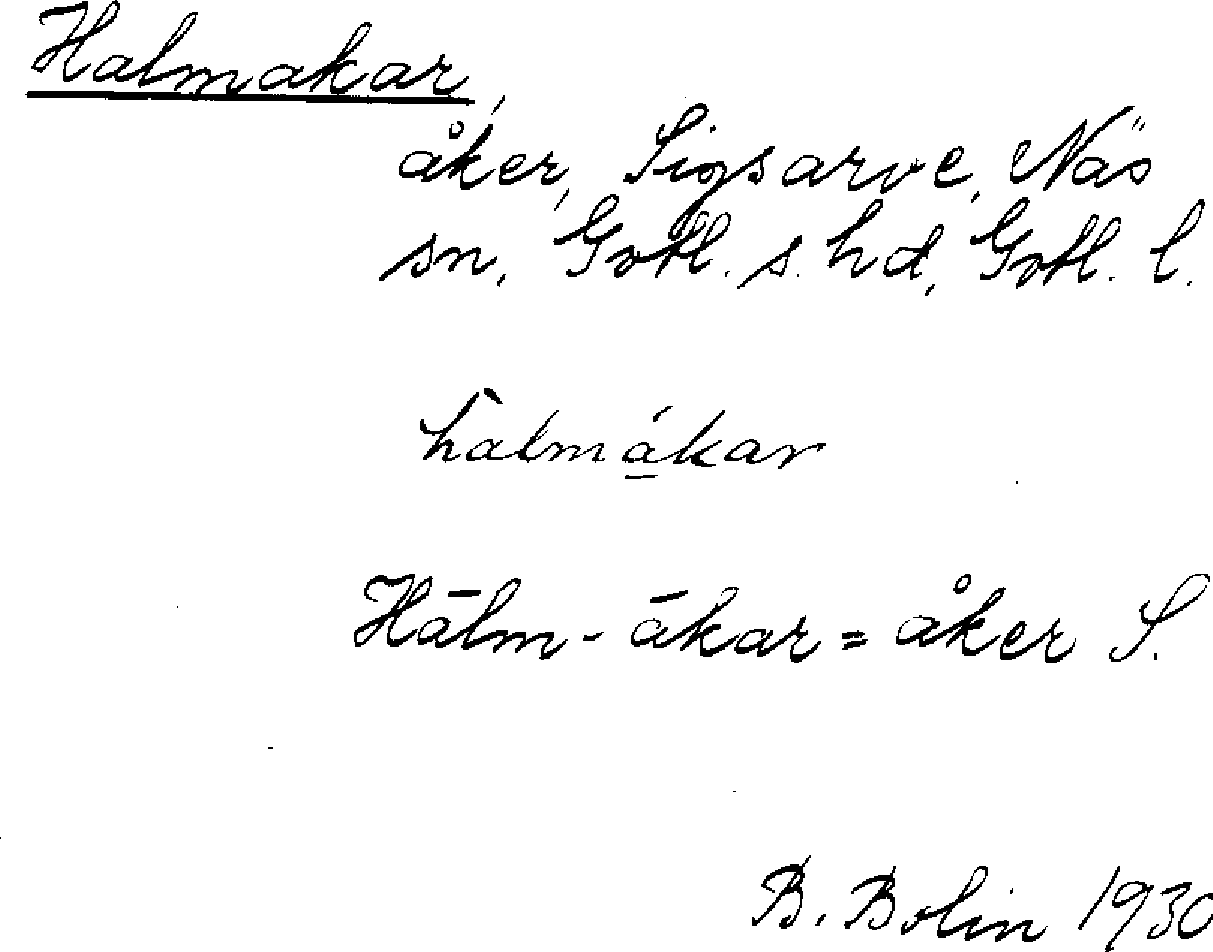 Halmakar,
åker, Sigsarve, Näs
sn, Gotl. s. hd, Gotl. l.
hàlmá̱kar
Hālm-ākar = åker S.
B. Bolin 1930